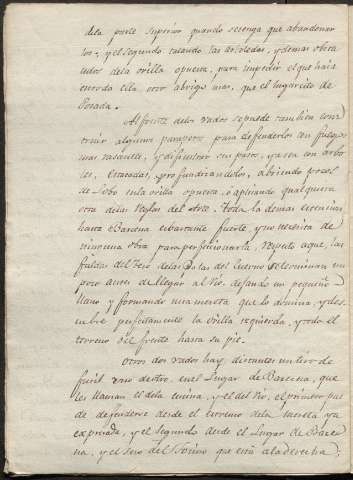 dela parte superior quando se tenga que abandonar
los, y el segundo talando las arboledas, y demas obsta
culos dela orilla opuesta, para impedir el que halla
en toda ella otro abrigo mas, que el lugarcito de
Posada.
Al frente delos vados se puede tambien cons
truir algunos parapetos para defenderlos con fuegos
mas rasantes, y dificultar su paso, ya sea con arbo
les, estacadas, profundizandolos, abriendo pozos
de Lobo en la orilla opuesta, o aplicando qualquiera
otra delas Reglas del Arte. Toda la demas extension
hasta Barcena es bastante fuerte, y no necesita de
ninguna obra para perfeccionarla, respeto a que, las
faldas del Teso delas Bolas del Cuerno se terminan un
poco antes de llegar al Rio, dejando un pequeño
llano y formando una meseta que lo domina, y des
cubre perfectamente la orilla izquierda, y todo el
terreno del frente hasta su pie.
Otros dos vados hay, distantes un tiro de
fusil uno de otro, en el Lugar de Barcena, que
les llaman el dela encina, y el del Rio, el primero pue
de defenderse desde el terreno dela meseta ya
expresada, y el segundo desde el Lugar de Barce
na, y el Teso del que está ala derecha